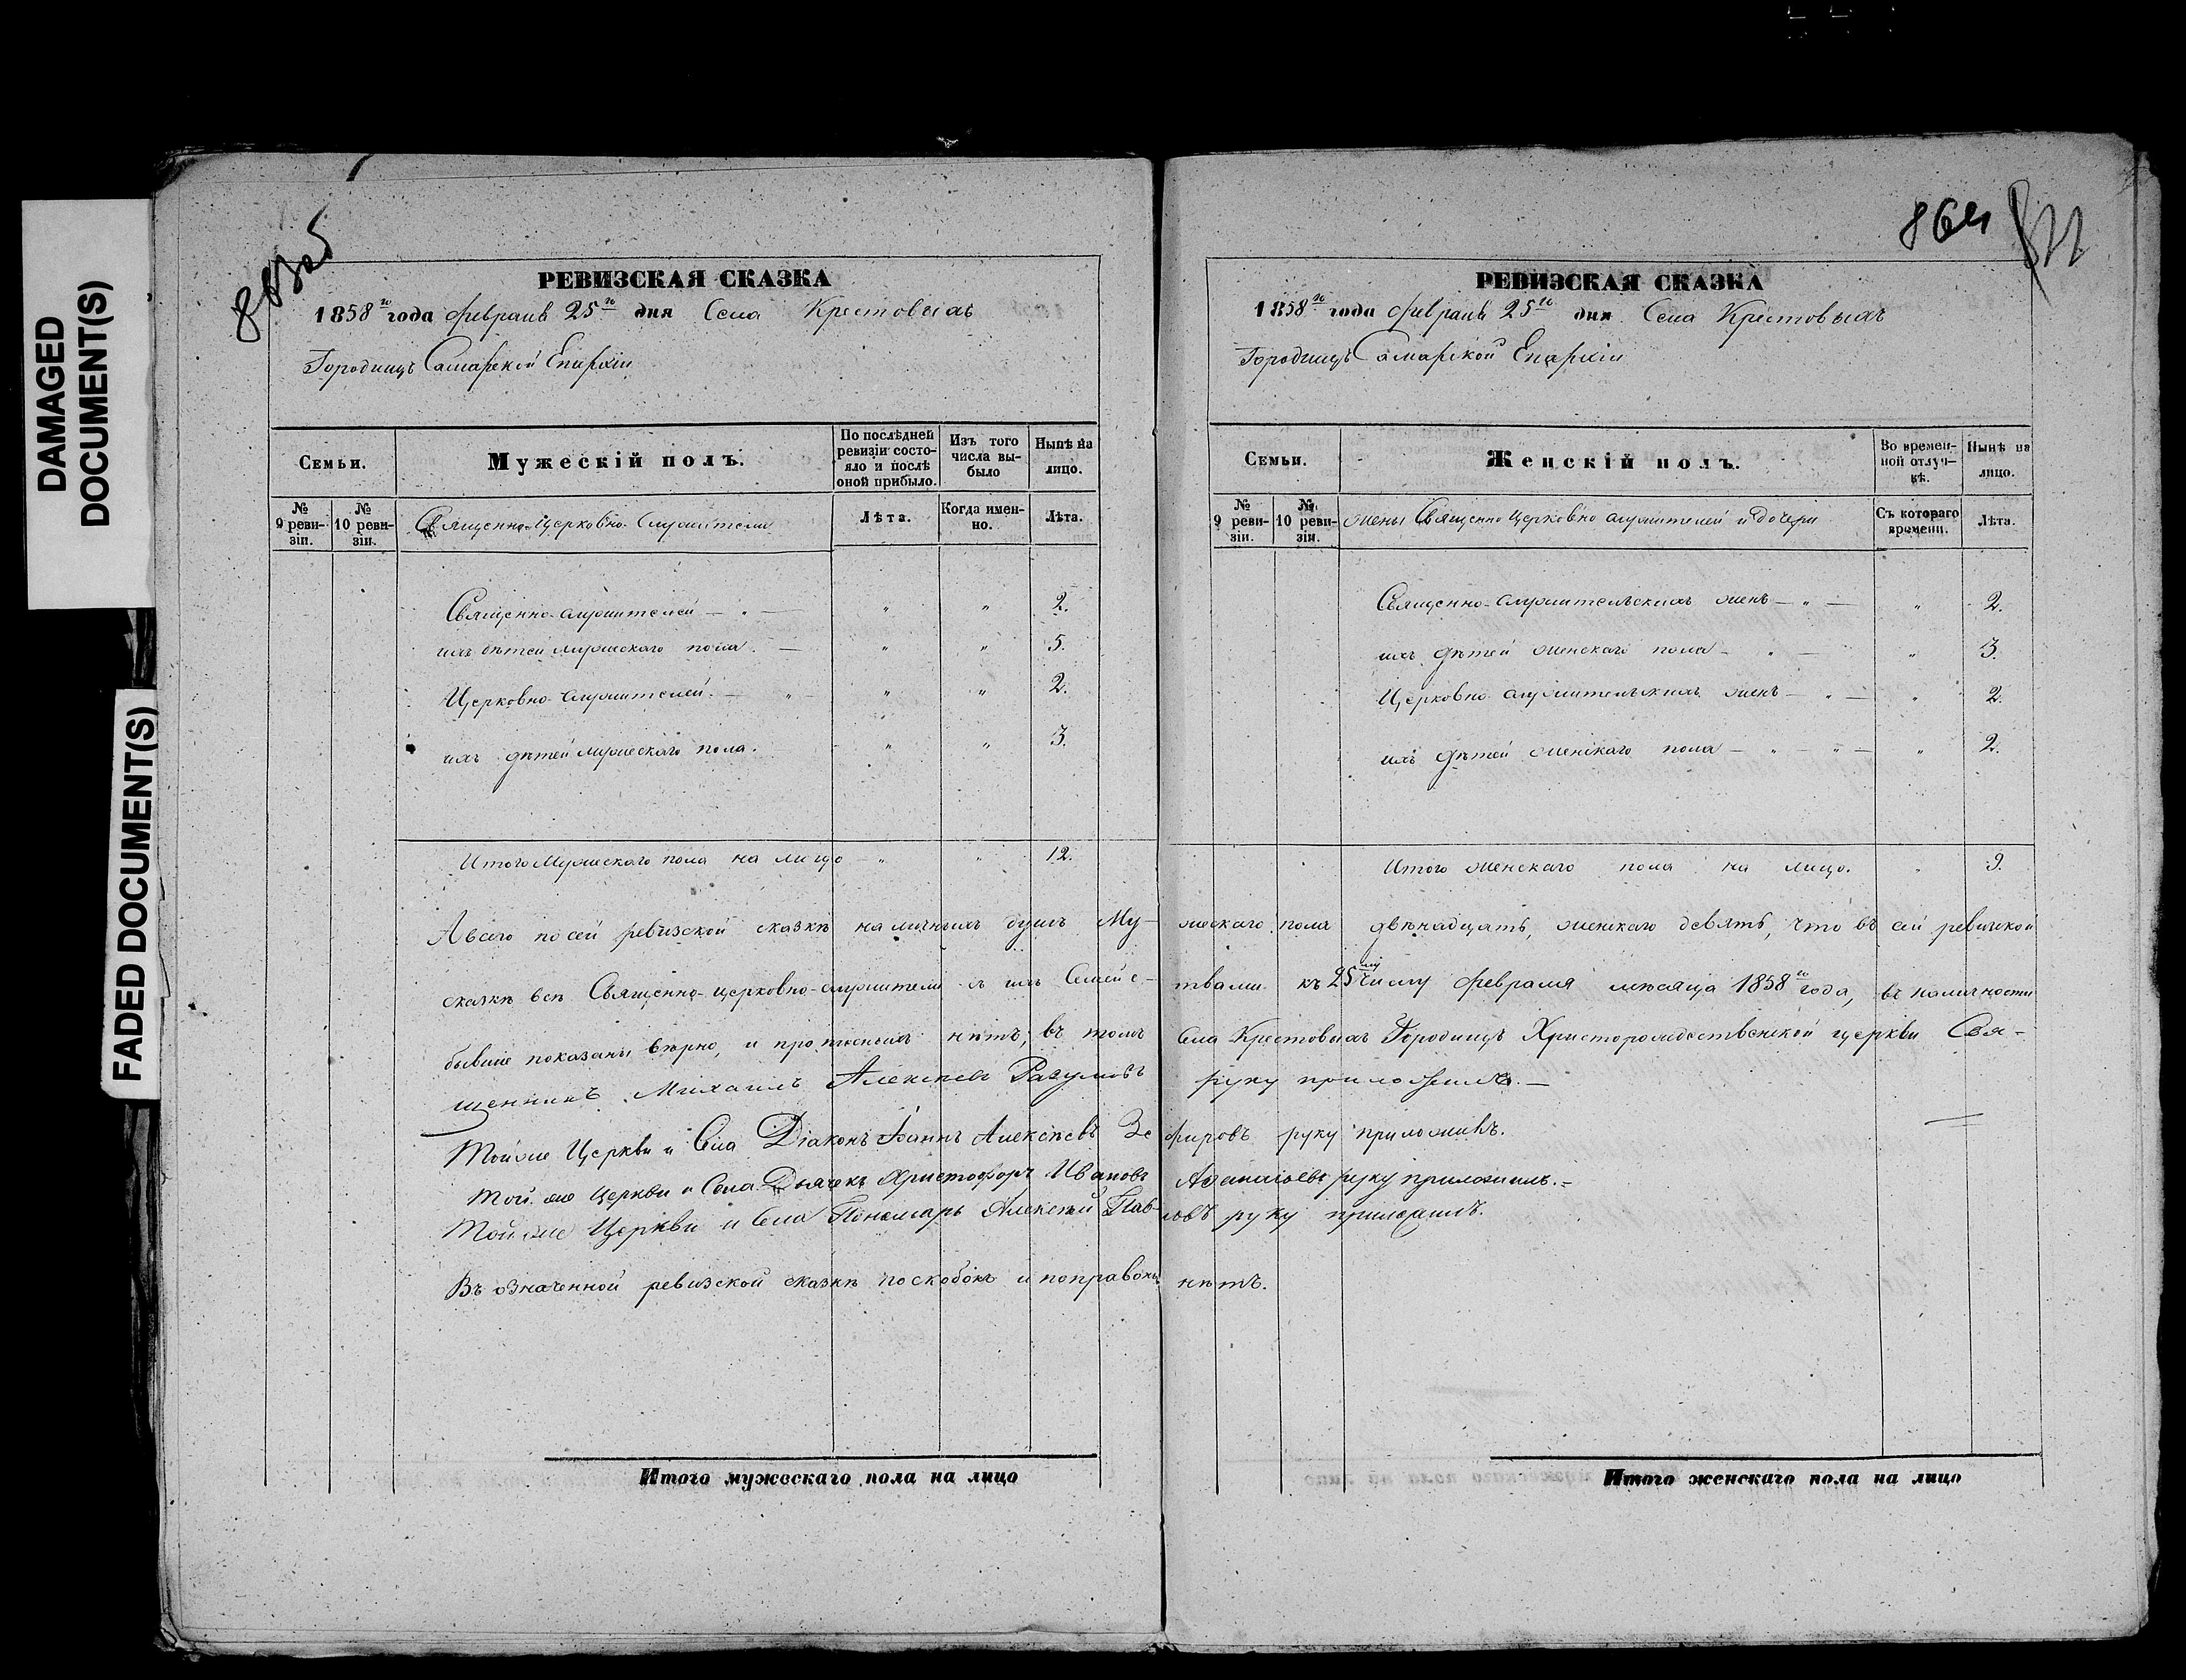 DAMAGED
DOCUMENT(S)
FADED DOCUMENT(S)
863об
РЕВИЗСКАЯ СКАЗКА
1858го года февраля 25го дня Села Крестовыхъ
Городищъ Самарской Епархіи
Семьи.
Мужескій полъ.
По послѣдней
ревизіи состо-
яло и послѣ
оной прибыло.
Изъ того
числа вы-
было
Нынѣ на
лицо.
№
9 реви-
зіи.
№
10 реви-
зіи.
Священно-Церковно-Служители
Лѣта.
Когда имен-
но.
Лѣта.
Священно-служителей — " — " " 2.
ихъ дѣтей мужескаго пола. — " " 5.
Церковно-служителей. — " — " " 2.
ихъ дѣтей мужескаго пола. " " 3.
Итого Мужескаго пола на лицо " " 12.
864
РЕВИЗСКАЯ СКАЗКА
1858го года февраля 25го дня Села Крестовыхъ
Городищъ Самарской Епархіи
Семьи.
Женскій полъ.
Во времен-
ной отлуч-
кѣ.
Нынѣ на
лицо.
№
9 реви-
зіи.
№
10 реви-
зіи.
жены Священно Церковно служителей и дочери
Съ котораго
времени.
Лѣта.
Священно-служительскихъ женъ — " — " 2.
ихъ дѣтей женскаго пола — " — " 3.
Церковно служительскихъ женъ — " — " 2.
ихъ дѣтей женскаго пола — " — " — " 2.
Итого женскаго пола на лицо. " 9.
А всего по сей ревизской сказкѣ наличныхъ душъ Му-жескаго пола двѣнадцать, женскаго девять, что въ сей ревизской
сказкѣ всѣ Священно-церковно-служители съ ихъ Семейс-твами къ 25му числу февраля мѣсяца 1858го года, въ наличности
бывшіе показаны вѣрно, и прописныхъ нѣтъ; въ томъ Села Крестовыхъ Городищъ Христорождественской церкви Свя-
щенникъ Михаилъ Алексѣевъ Разумовъ руку приложилъ. —
Тойже Церкви и Села Діаконъ Іоаннъ Алексѣевъ Зе-фировъ руку приложилъ.
Той же Церкви и Села Дьячекъ Христофоръ Ивановъ Аѳанасіевъ руку приложилъ. =
Тойже Церкви и Села Пономарь Алексѣй Пав-ловъ руку приложилъ.
Въ означенной ревизской сказкѣ поскобокъ и поправокъ нѣтъ.
Итого мужескаго пола на лицо
Итого женскаго пола на лицо